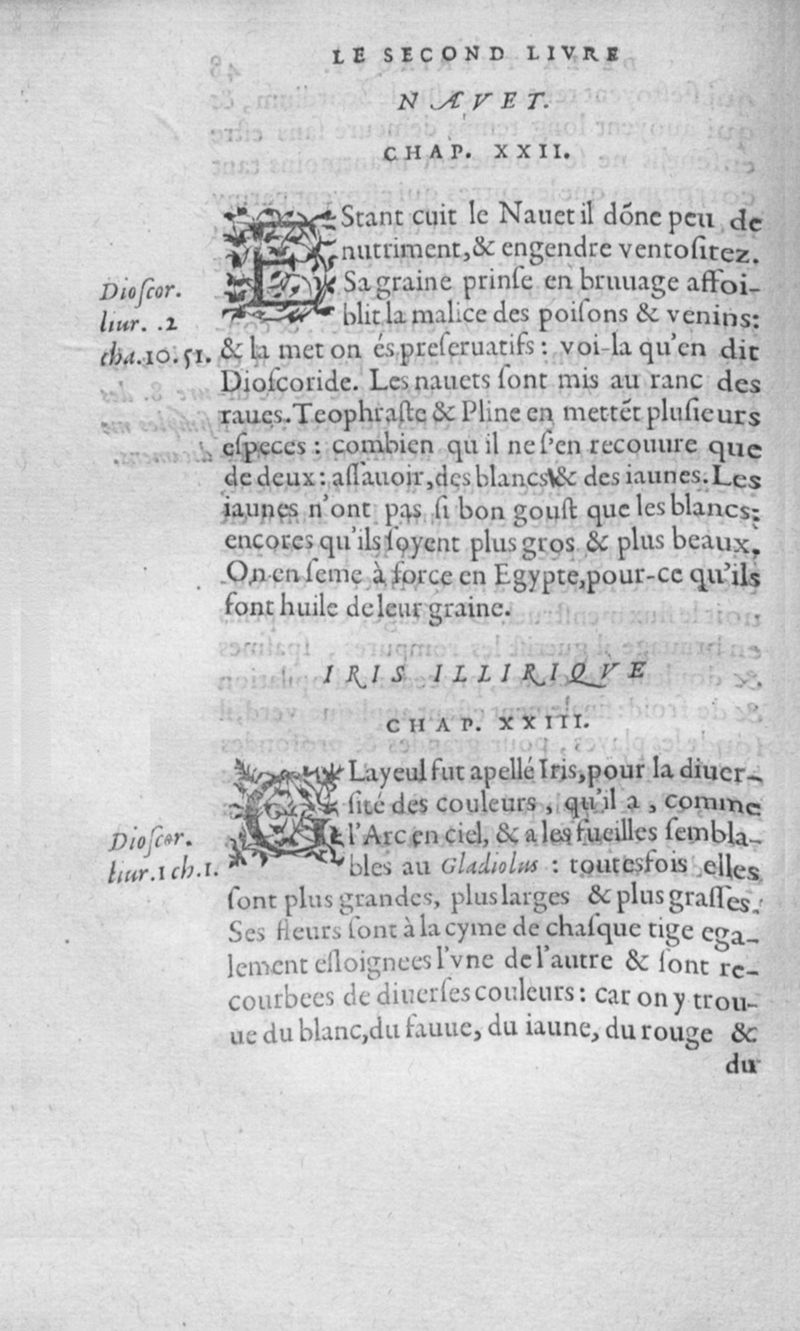 LE SECOND LIVRE
NAVET.
CHAP. XXII.
EStant cuit le Nauet il dõne peu de
nutriment, & engendre ventoſitez.
Sa graine prinſe en bruuage affoi-
blit la malice des poiſons & venins:
& la met on és preſeruatifs: voi-la qu'en dit
Dioſcoride. Les nauets ſont mis au ranc des
raues. Teophraſte & Pline en mettẽt pluſieurs
eſpeces: combien qu'il ne ſ'en recouure que
de deux: aſſauoir, des blancs & des iaunes. Les
iaunes n'ont pas ſi bon gouſt que les blancs:
encores qu'ils ſoyent plus gros & plus beaux.
On en ſeme à force en Egypte, pour-ce qu'ils
font huile de leur graine.
Dioſcor.
liur. .2
cha.10.51.
IRIS ILLIRIQVE
CHAP. XXIII.
GLayeul fut apellé Iris, pour la diuer-
ſité des couleurs, qu'il a, comme
l'Arc en ciel, & a les fueilles ſembla-
bles au Gladiolus: toutesfois elles
ſont plus grandes, plus larges & plus graſſes.
Ses fleurs ſont à la cyme de chaſque tige ega-
lement eſloignees l'vne de l'autre & ſont re-
courbees de diuerſes couleurs: car on y trou-
ue du blanc, du fauue, du iaune, du rouge &
du
Dioſcor.
liur.1 ch.1.